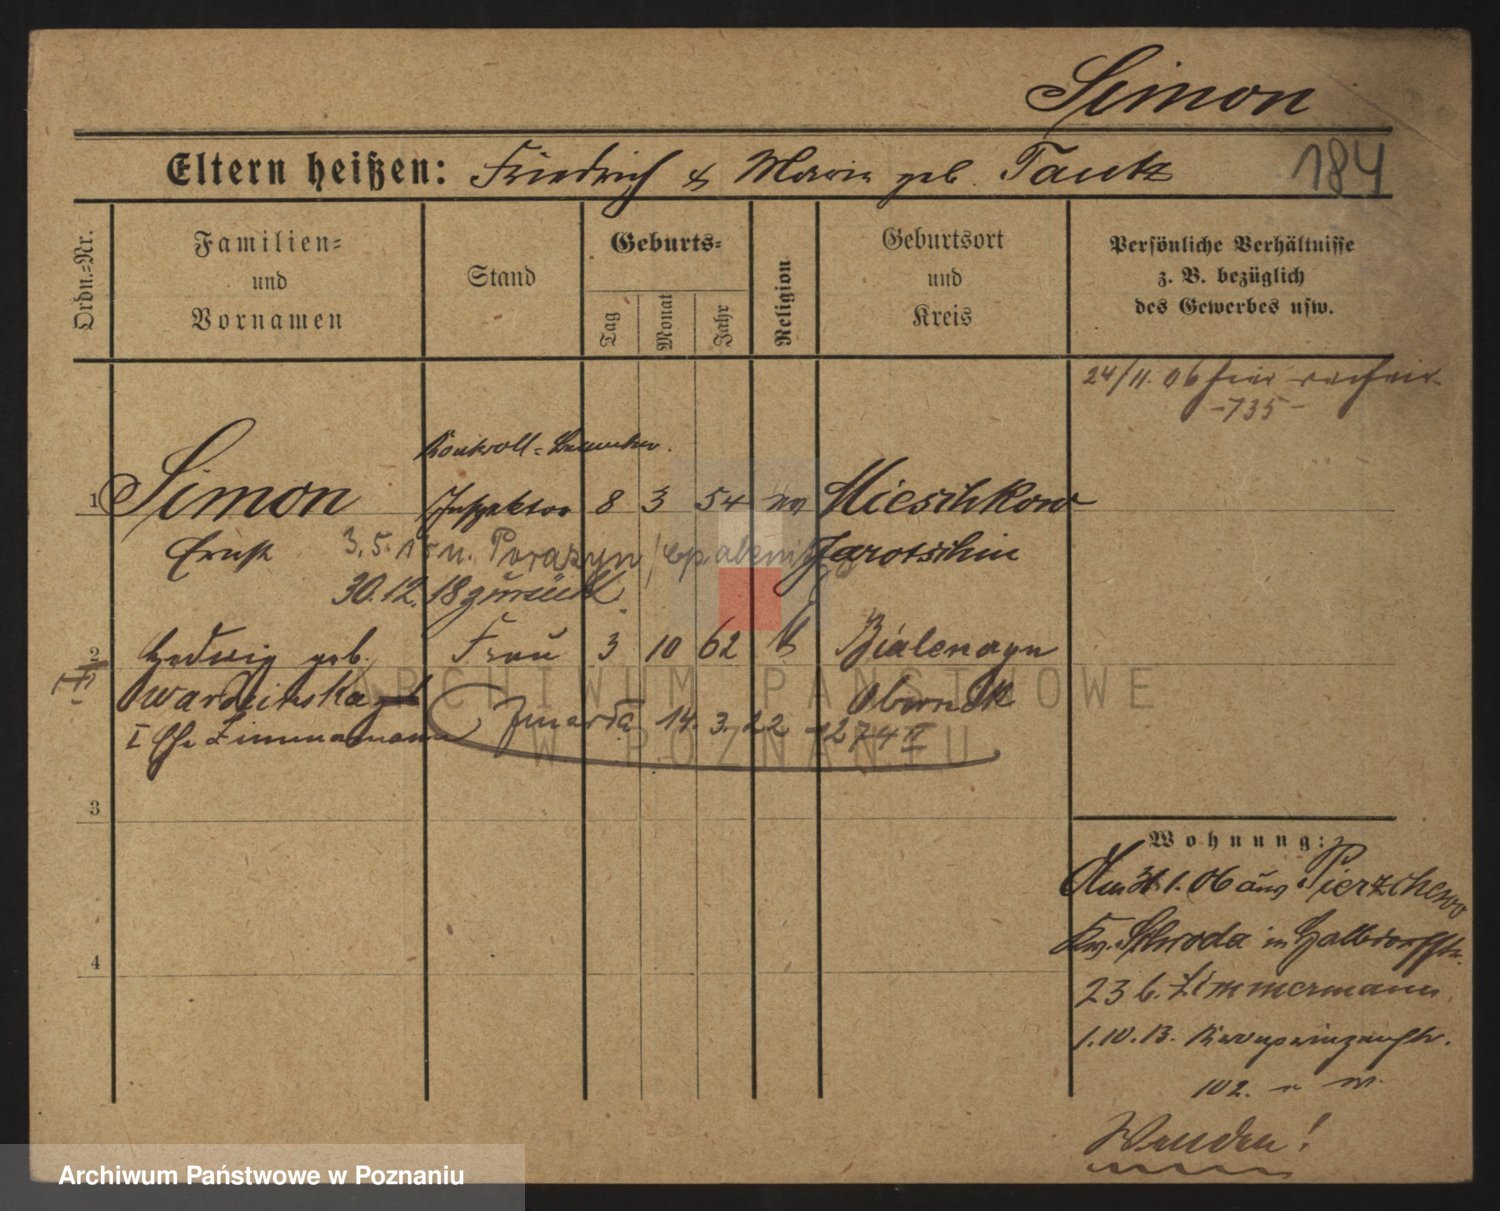 Simon
Eltern heißen: Friedrich & Marie geb. Tautz
184
Ordn.=Nr.
Familien=
und
Vornamen
Stand
Geburts=
Tag
Monat
Jahr
Religion
Geburtsort
und
Kreis
Persönliche Verhältnisse
z. B. bezüglich
des Gewerbes usw.
24/11. 06 hier
-735-
Kontroll=
1 Simon Inspektor 8 3 54 Mieschkow
Ernst 3.5.15 n. Porazyn / Opalenitza Jarotschin
30.12.18 zurück.
2 Hedwig geb. Frau 3 10 62 Bialenzyn
II
Wardzinska Obornik
I Ehe Zimmermann 14. 3. 22 - 1274 II
3
4
Wohnung:
Am 31.1.06 aus Pierzchewo
Kr. Schroda in Halbdorfstr.
23 b. Zimmermann
1.10.13. Kronprinzenstr.
102.
Wenden!
ARCHIWUM PAŃSTWOWE
W POZNANIU
Archiwum Państwowe w Poznaniu